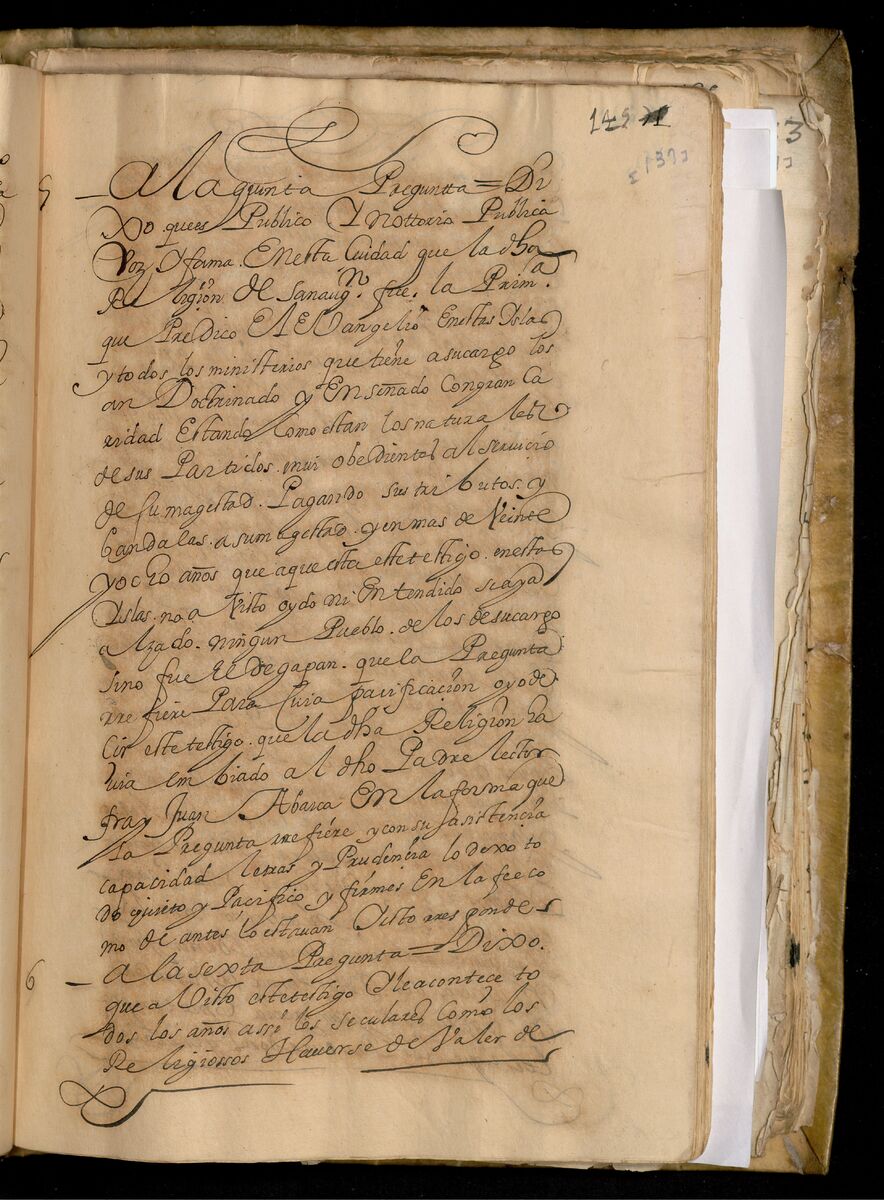 145
[137]
3
5
A la quinta Preguntta = Di
xo. quees Publico Y nottorio Publica
Voz Y fama. Enesta Cuidad que la dha
Religion de sanaugn. fue. la Prima.
que Predico El Evangelio Enestas Yslas
y todos los ministerios que tiene asucargo los
an Doctrinado y Enseñado Congran Ca
ridad Estando Como estan los naturales
desus Partidos. mui obedientes al servicio
de su magestad. Pagando sus tributos. y
bandalas. a sumagestad. y en mas de Veinte
y ocho años que aque esta estetestigo. enestas
Yslas. no a Visto oydo ni Entendido seaya
alzado. ningun Pueblo. de los desucargo
sino fue El de gapan. que la Pregunta
rrefiere Para Cuia pacificacion oyo de
cir estetestigo. que la dha Religion ha
uia embiado al dho Padre lector
fray Juan Abarca En la forma que
la Pregunta rrefiere y con su asistencia
capacidad letras y Prudencia lo dexo to
do quieto y Pacifico y firmes En la fee co
mo de antes lo estauan Y esto rresponde
6
A la sexta Pregunta = Dixo.
que a Visto estetestigo Y leacontece to
dos los años assi los seculares Como los
Religiossos Hauerse de Valer de